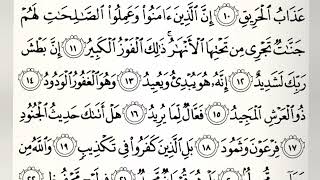 عَذَابُ ٱلْحَرِيقِ ١٠ إِنَّ ٱلَّذِينَ ءَامَنُوا۟ وَعَمِلُوا۟ ٱلصَّٰلِحَٰتِ لَهُمْ
جَنَّٰتٌ تَجْرِى مِن تَحْتِهَا ٱلْأَنْهَٰرُ ۚ ذَٰلِكَ ٱلْفَوْزُ ٱلْكَبِيرُ ١١ إِنَّ بَطْشَ
رَبِّكَ لَشَدِيدٌ ١٢ إِنَّهُۥ هُوَ يُبْدِئُ وَيُعِيدُ ١٣ وَهُوَ ٱلْغَفُورُ ٱلْوَدُودُ ١٤
ذُو ٱلْعَرْشِ ٱلْمَجِيدُ ١٥ فَعَّالٌ لِّمَا يُرِيدُ ١٦ هَلْ أَتَىٰكَ حَدِيثُ ٱلْجُنُودِ
١٧ فِرْعَوْنَ وَثَمُودَ ١٨ بَلِ ٱلَّذِينَ كَفَرُوا۟ فِى تَكْذِيبٍ ١٩ وَٱللَّهُ مِن